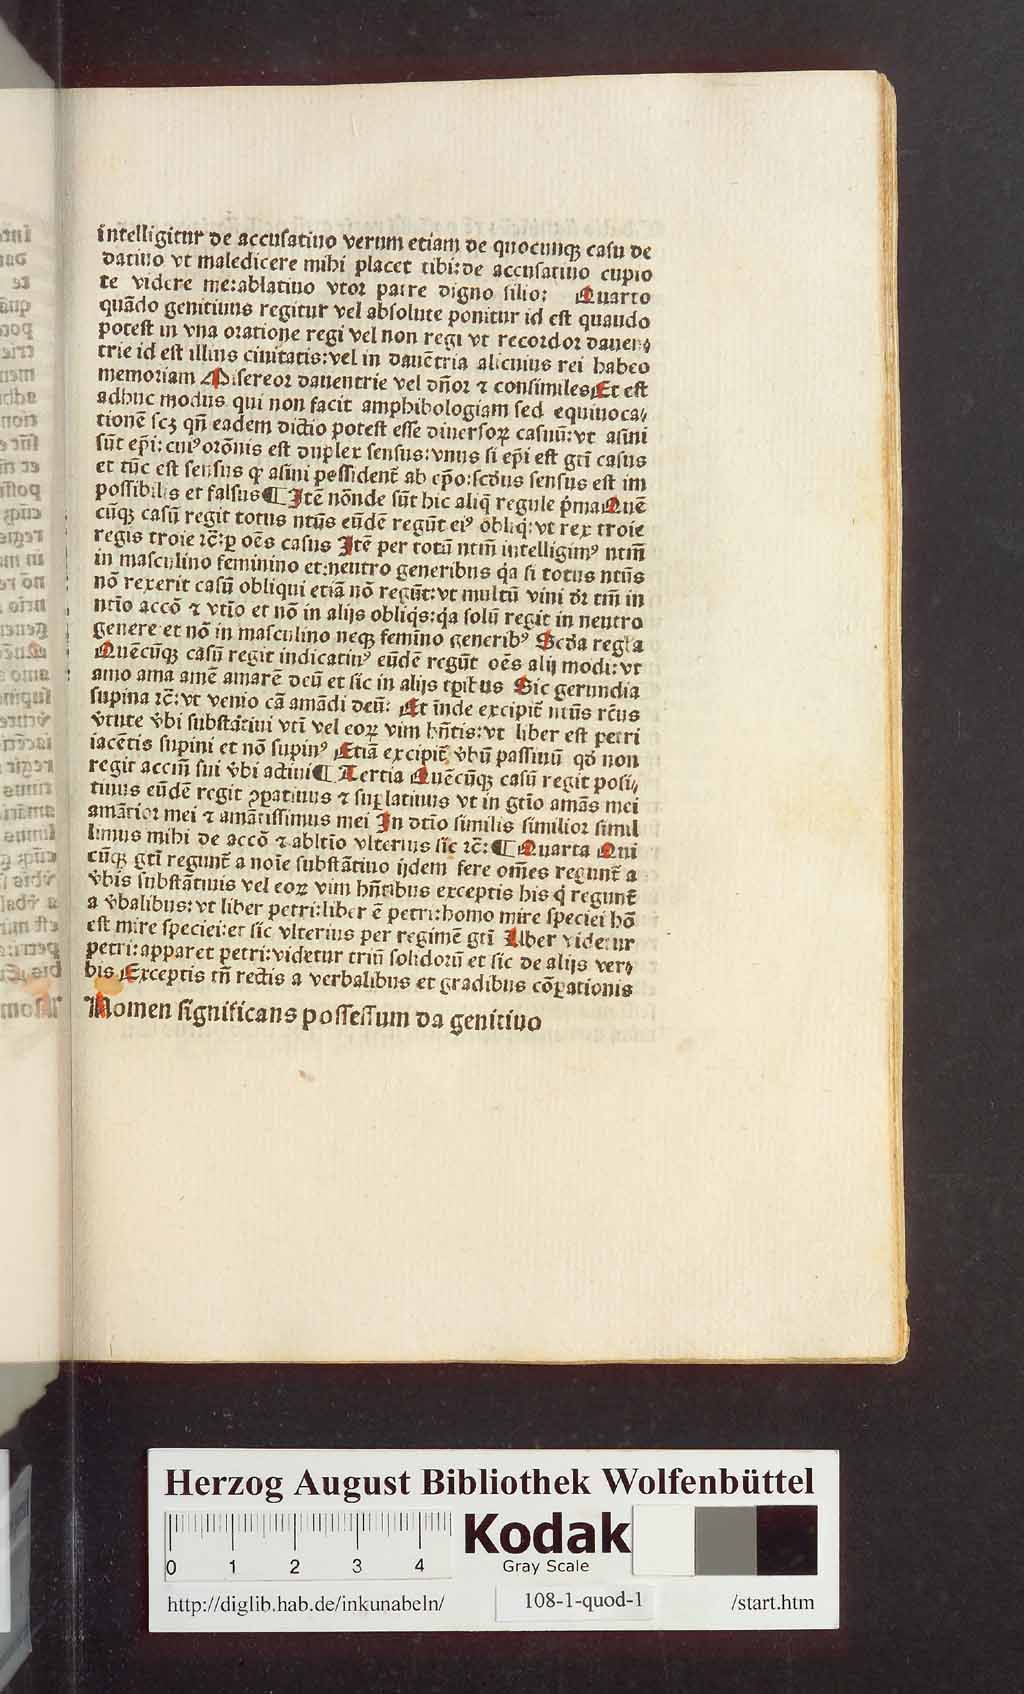 intelligitur de accusatiuo verum etiam de quocunqꝫ casu de
datiuo vt maledicere mihi placet tibi: de accusatiuo cupio
te videre me: ablatiuo vtor patre digno filio: Quarto
quādo genitiuus regitur vel absolute ponitur id est quando
potest in vna oratione regi vel non regi vt recordor dauen⸗
trie id est illius ciuitatis: vel in dauētria alicuius rei habeo
memoriam Misereor dauentrie vel dn̄or ⁊ consimiles Et est
adhuc modus qui non facit amphibologiam sed equiuoca⸗
tionē scꝫ qn̄ eadem dictio potest esse diuersoꝝ casuū: vt asini
sūt ep̄i: cuiꝰ orōnis est duplex sensus: vnus si ep̄i est gtī casus
et tūc est sensus ꝙ asini possident̄ ab ep̄o: scdus sensus est im
possibilis et falsus ¶ Itē nōnde sūt hic aliq̄ regule p̄ma Quē
cūqꝫ casū regit totus ntūs eūdē regūt eiꝰ obliq̄: vt rex troie
regis troie ⁊c̄: ꝑ oēs casus Itē per totū ntm̄ intelligimꝰ ntm̄
in masculino feminino et: neutro generibus q̄a si totus ntūs
nō rexerit casū obliqui etiā nō regūt: vt multū vini dr̄ tm̄ in
ntīo accō ⁊ vtīo et nō in alijs obliq̄s: q̄a solū regit in neutro
genere et nō in masculino neqꝫ femīno generibꝰ Scda regla
Quēcūqꝫ casū regit indicatiuꝰ eūdē regūt oēs alij modi: vt
amo ama amē amarē deū et sic in alijs tꝑibus Sic gerundia
supina ⁊c̄: vt venio cā amādi deū: Et īnde excipit̄ ntūs rc̄us
v̄tute v̄bi substātiui vtī vel eoꝝ vim hn̄tis: vt liber est petri
iacētis supini et nō supinꝰ Etiā excipit̄ v̄bū passiuū qd̄ non
regit accm̄ sui v̄bi actiui ¶ Tertia Quēcūqꝫ casū regit posi⸗
tiuus eūdē regit ꝯpatiuus ⁊ suꝑlatiuus vt in gtīo amās mei
amātior mei ⁊ amātissimus mei In dtīo similis similior simil
limus mihi de accō ⁊ abltīo vlterius sic ⁊c̄: ¶ Quarta Qui
cūqꝫ gtī regunt̄ a noīe substātiuo ijdem fere om̄es regunt̄ a
v̄bis substātiuis vel eoꝝ vim hn̄tibus exceptis his q̄ regunt̄
a v̄balibus: vt liber petri: liber ē petri: homo mire speciei hō
est mire speciei: et sic vlterius per regimē gtī Liber videtur
petri: apparet petri: videtur triū solidorū et sic de alijs ver⸗
bis Exceptis tn̄ rectis a verbalibus et gradibus cōꝑationis
Nomen significans possessum da genitiuo
Herzog August Bibliothek Wolfenbüttel
0 1 2 3 4
Kodak
Gray Scale
http://diglib.hab.de/inkunabeln/ 108-1-quod-1 /start.htm